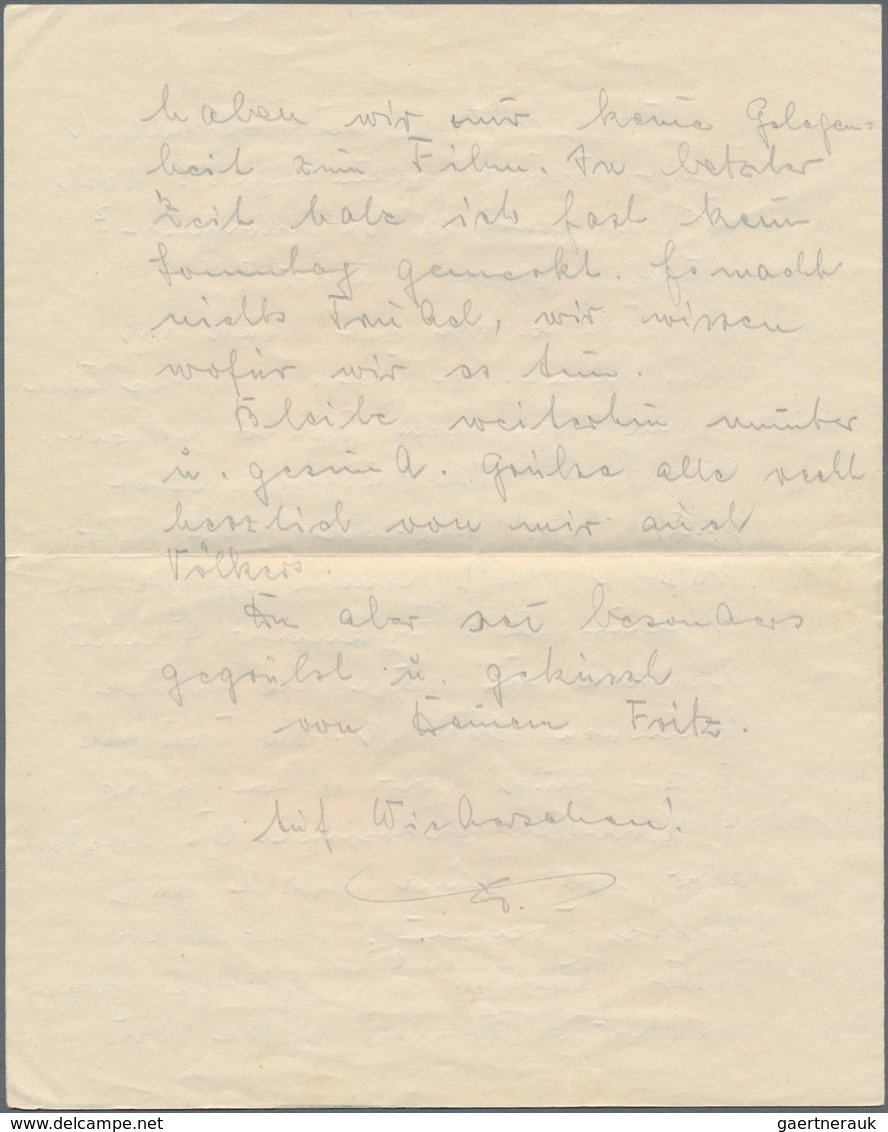 haben wir nur keine Gelegen=
heit zum Film. In letzter
Zeit habe ich fast kein
Sonntag gemerkt. Es macht
nichts Trudel, wir wissen
wofür wir es tun.
Bleibe weiterhin munter
u. gesund. Grüße alle recht
herzlich von mir auch
Völkers.
Du aber sei besonders
gegrüßt u. geküsst
von Deinem Fritz.
Auf Wiedersehen!
delcampe.net
gaertnerauk